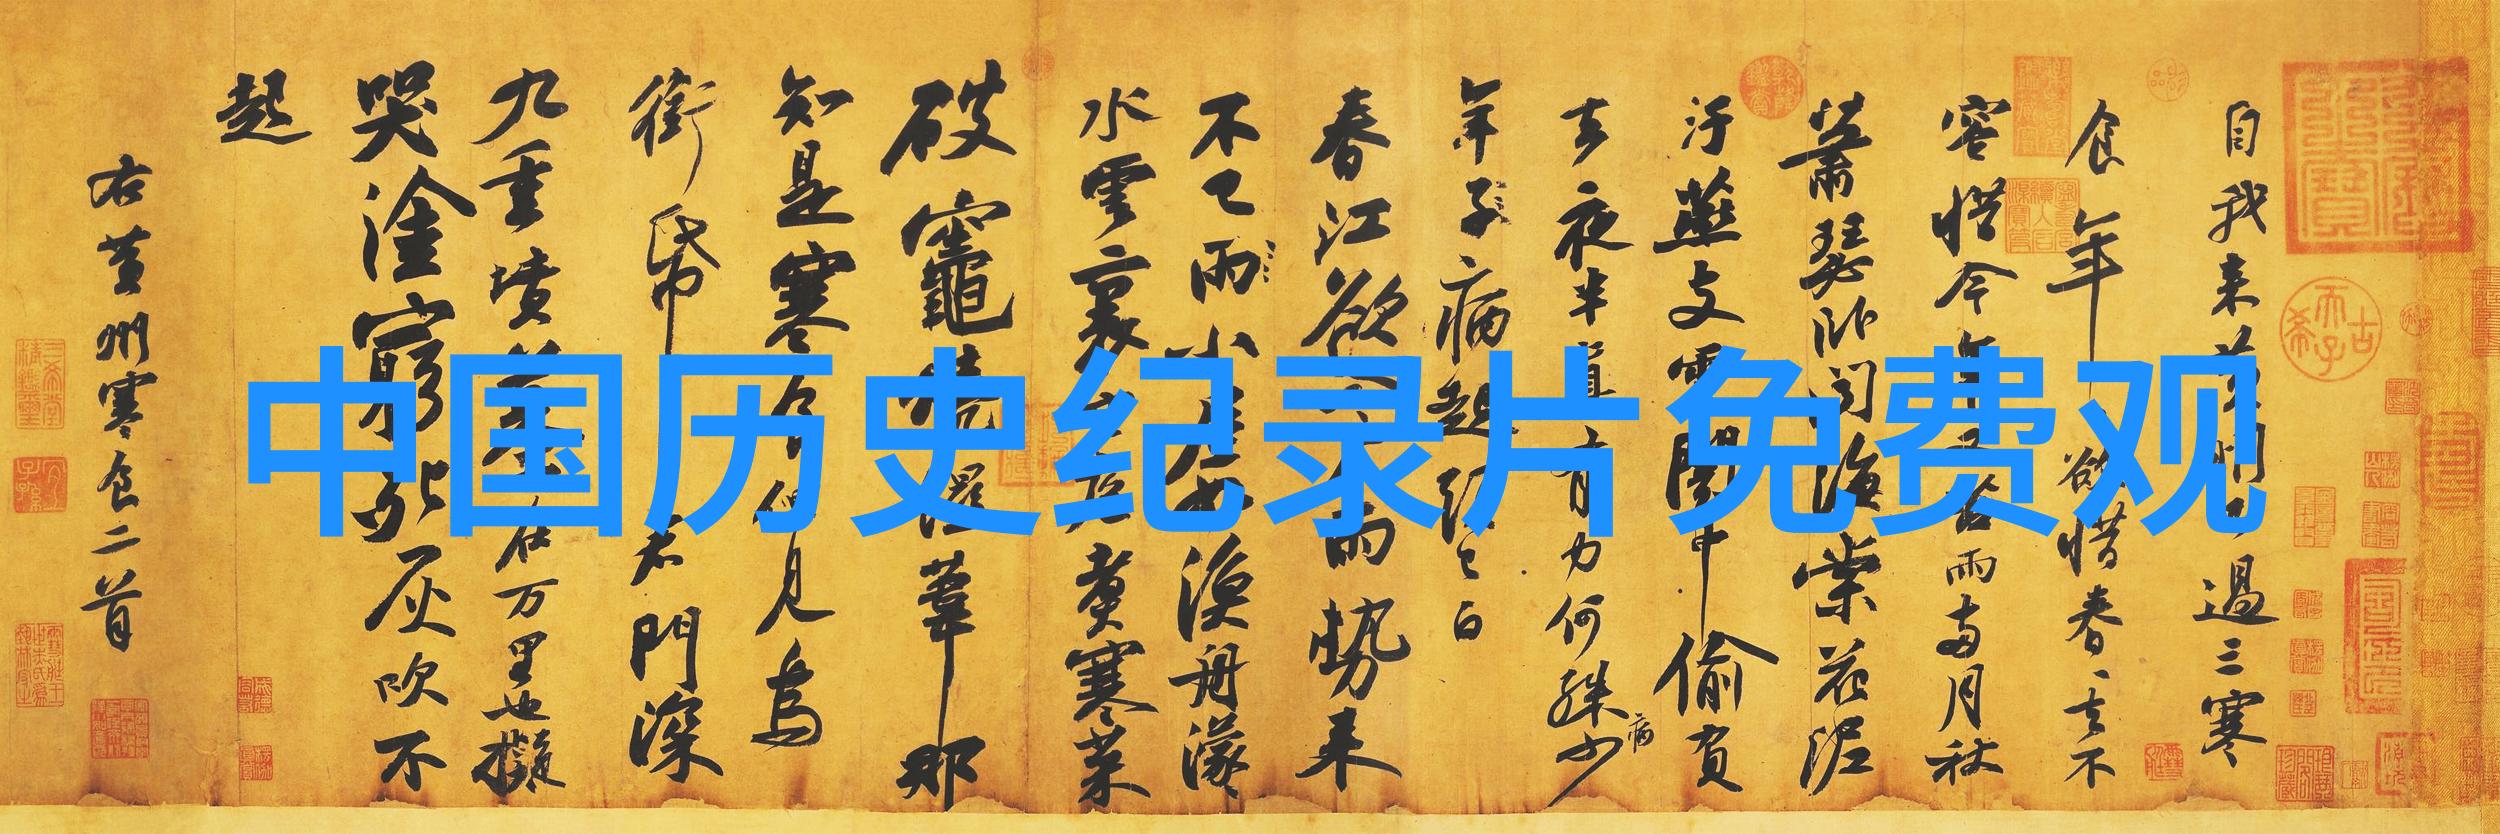 中国历史纪录片免费观
自我来黄州已過三寒
食年年欲惜春〻去不
容惜今年又苦雨兩月秋
蕭瑟卧聞海棠花泥
汙燕支雪闇中偷負
去夜半真有力何殊少
病
年子病起頭已白
春江欲入户雨勢来
不已雨小屋如漁舟濛
水雲裏空庖煮寒菜
破竈燒濕葦那
知是寒食但見烏
銜帋君門深
九重墳墓在万里也擬
哭塗窮死灰吹不
起
右黄州寒食二首